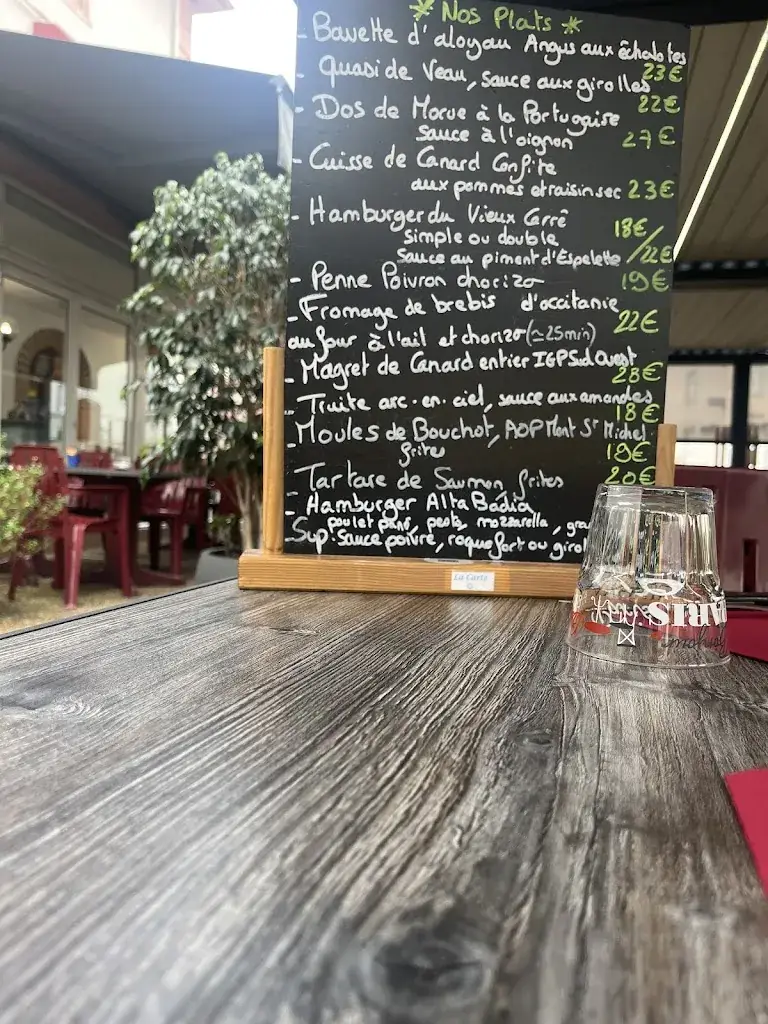 * Nos Plats *
- Bavette d'aloyau Angus aux échalotes
23€
- Quasi de Veau, sauce aux girolles
22€
- Dos de Morue à la Portugaise
sauce à l'oignon 27€
- Cuisse de Canard Confite
aux pommes et raisin sec 23€
- Hamburger du Vieux Carré 18€
simple ou double
sauce au piment d'Espelette /22€
- Penne Poivron chorizo 19€
- Fromage de brebis d'occitanie
22€
au four à l'ail et chorizo (≃25min)
- Magret de Canard entier IGP Sud Ouest
28€
- Truite arc-en-ciel, sauce aux amandes
18€
- Moules de Bouchot, AOP Mont St Michel
frites 19€
- Tartare de Saumon frites 20€
- Hamburger Alta Badia
poulet pané, pesto, mozzarella,
Sup. Sauce poivre, roquefort ou
La Carte
PARIS